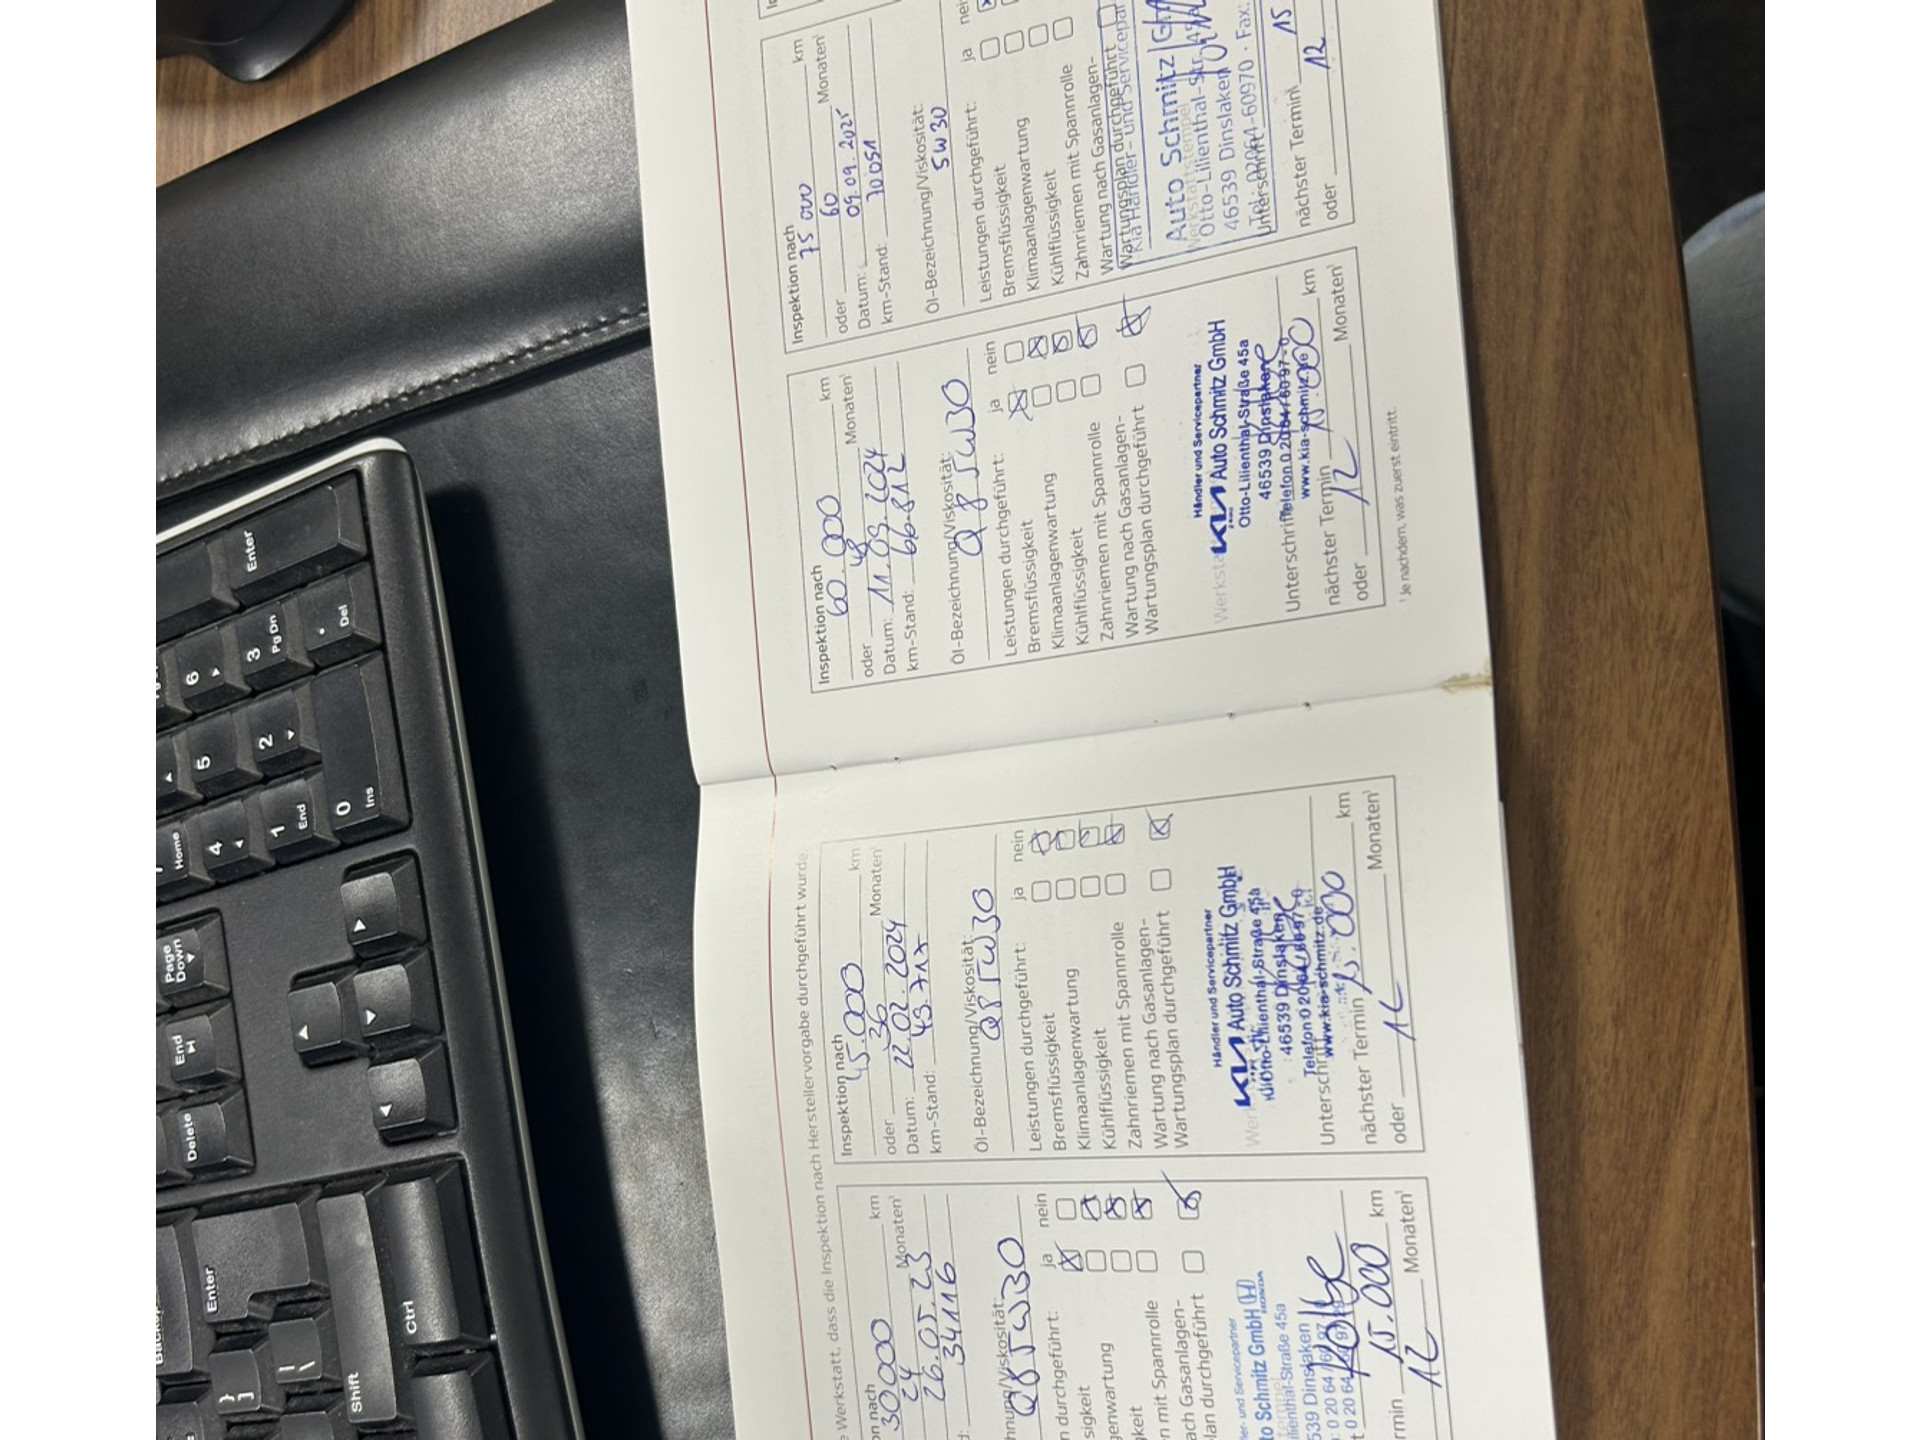 e Werkstatt, dass die Inspektion nach Herstellervorgabe durchgeführt wurde
on nach
30000 km
24 Monaten¹
26.05.23
d: 34116
hnung/Viskosität:
Q8 5W30
n durchgeführt: ja nein
sigkeit
genwartung
keit
n mit Spannrolle
ach Gasanlagen-
plan durchgeführt
ler- und Servicepartner
to Schmitz GmbH HONDA
ilienthal-Straße 45a
539 Dinslaken
rmin 15.000 km
12 Monaten¹
Inspektion nach
45.000 km
oder 36 Monaten¹
Datum: 22.02.2024
km-Stand: 43.717
Öl-Bezeichnung/Viskosität:
Q8 5W30
Leistungen durchgeführt: ja nein
Bremsflüssigkeit
Klimaanlagenwartung
Kühlflüssigkeit
Zahnriemen mit Spannrolle
Wartung nach Gasanlagen-
Wartungsplan durchgeführt
Händler und Servicepartner
KIA Auto Schmitz GmbH
Otto-Lilienthal-Straße 45a
46539 Dinslaken
Telefon 0 20 64 / 60 97-0
www.kia-schmitz.de
Unterschrift
nächster Termin 15.000 km
oder 12 Monaten¹
Inspektion nach
60.000 km
oder 48 Monaten¹
Datum: 11.09.2024
km-Stand: 66.812
Öl-Bezeichnung/Viskosität:
Q8 5W30
Leistungen durchgeführt: ja nein
Bremsflüssigkeit
Klimaanlagenwartung
Kühlflüssigkeit
Zahnriemen mit Spannrolle
Wartung nach Gasanlagen-
Wartungsplan durchgeführt
Händler und Servicepartner
KIA Auto Schmitz GmbH
Otto-Lilienthal-Straße 45a
46539 Dinslaken
Telefon 0 20 64 / 60 97-0
www.kia-schmitz.de
Unterschrift
nächster Termin 15.000 km
oder 12 Monaten¹
¹ Je nachdem, was zuerst eintritt.
Inspektion nach
75 000 km
oder 60 Monaten¹
Datum: 09.09.2025
km-Stand: 70051
Öl-Bezeichnung/Viskosität:
5W30
Leistungen durchgeführt: ja nein
Bremsflüssigkeit
Klimaanlagenwartung
Kühlflüssigkeit
Zahnriemen mit Spannrolle
Wartung nach Gasanlagen-
Wartungsplan durchgeführt
Kia Händler- und Servicepar
Auto Schmitz
Werkstattstempel
Otto-Lilienthal-Str. 45a
46539 Dinslaken
Tel.: 02064-60970 · Fax:
Unterschrift
nächster Termin 15
oder 12
Enter
6
3
Pg Dn
.
Del
5
2
0
Ins
Home
4
1
End
Page Down
End
Delete
Enter
}
]
|
\
Shift
Ctrl